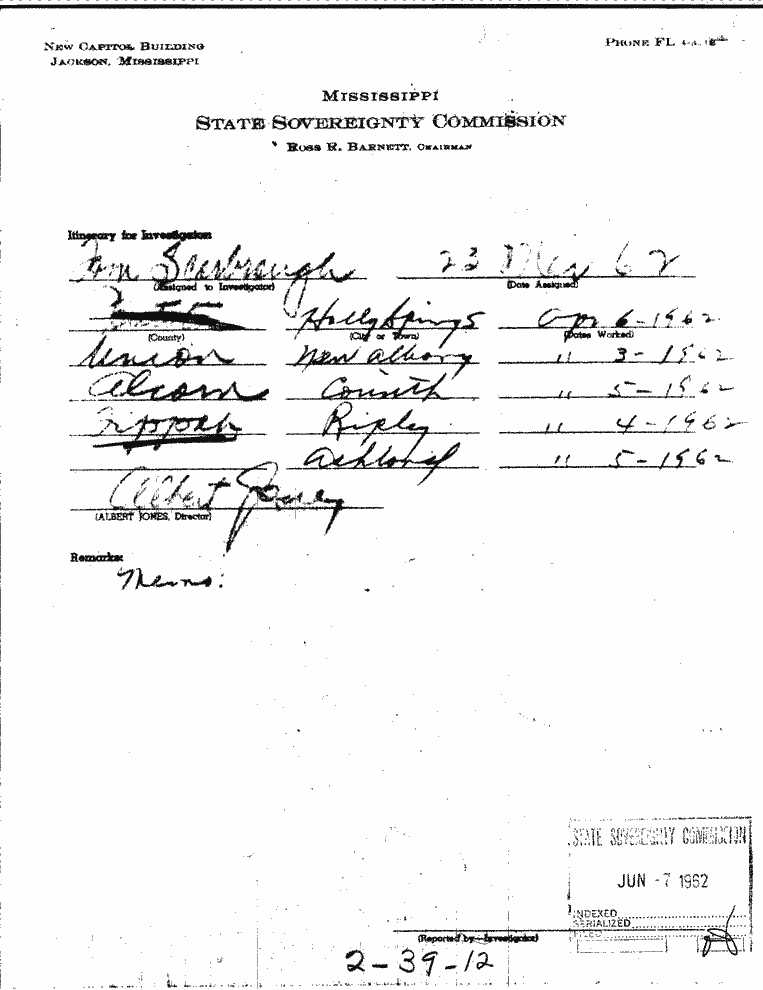 NEW CAPITOL BUILDING
JACKSON, MISSISSIPPI
PHONE FL
MISSISSIPPI
STATE SOVEREIGNTY COMMISSION
ROSS R. BARNETT, CHAIRMAN
Itinerary for Investigator:
Tom Scarbrough 23 62
(Assigned to Investigator) (Date Assigned)
Holly Springs Apr 6-1962
(County) (City or Town) (Dates Worked)
Union New Albany " 3-1962
Alcorn Corinth " 5-1962
Tippah Ripley " 4-1962
Ashland " 5-1962
Albert Jones
(ALBERT JONES, Director)
Remarks:
Memo:
STATE SOVEREIGNTY COMMISSION
JUN -7 1962
INDEXED
SERIALIZED
FILED
(Reported by—Investigator)
2-39-12